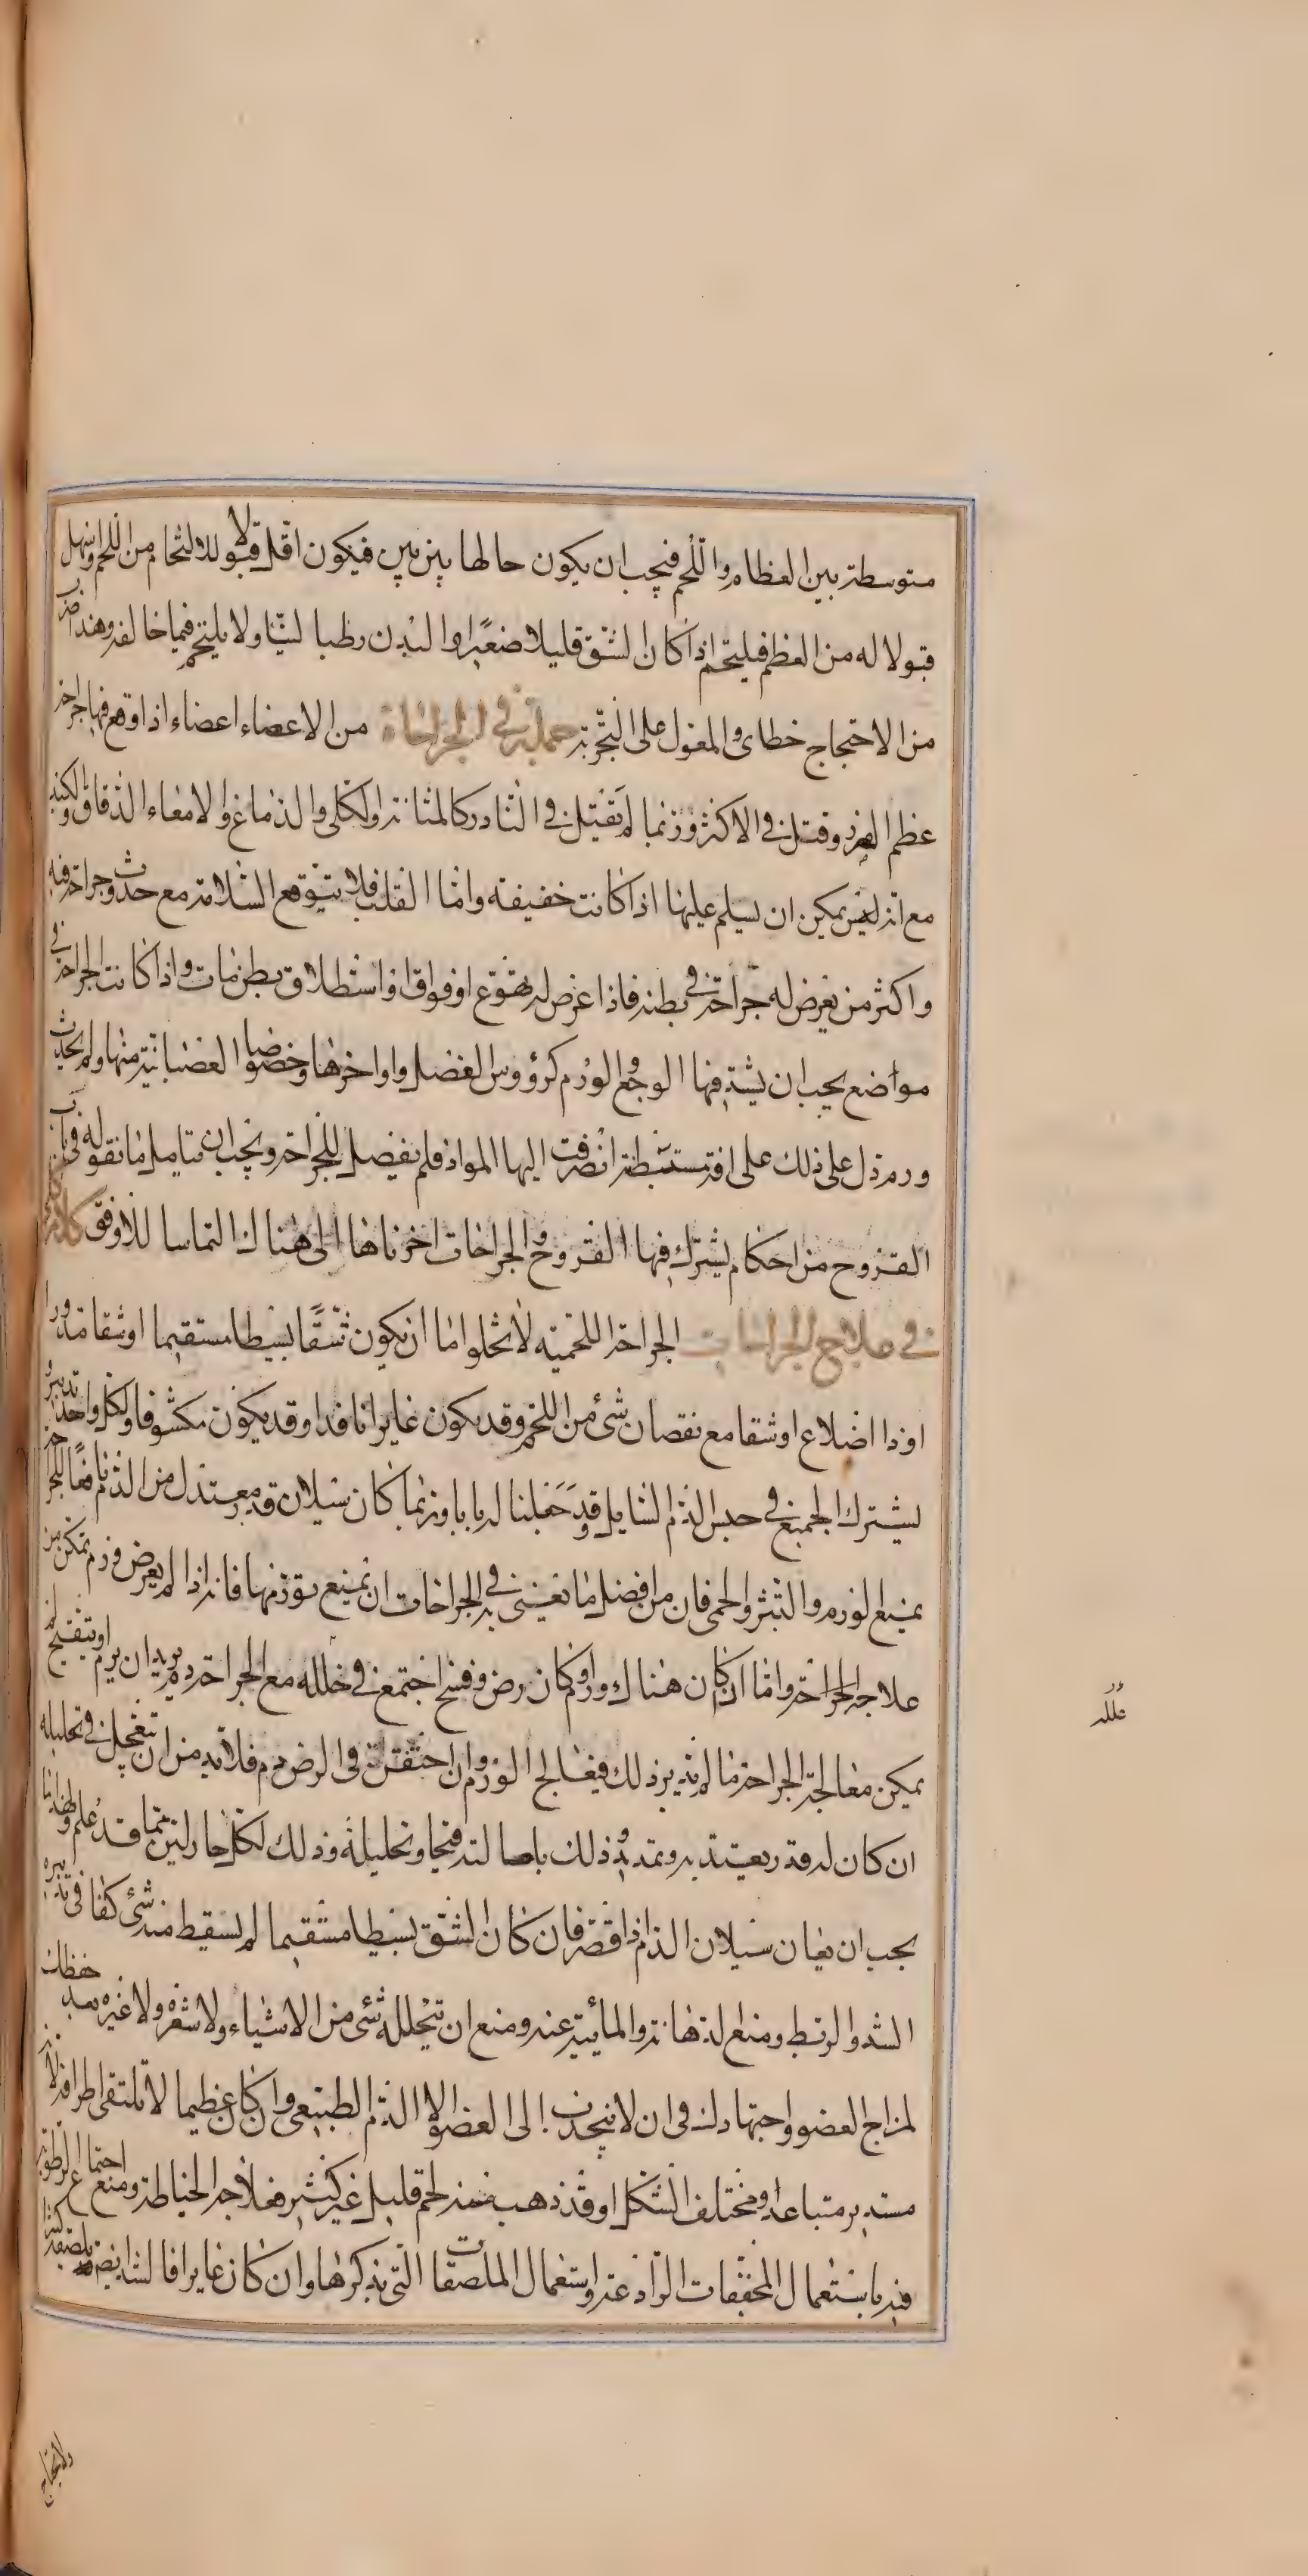 متوسطة بين العظام واللحم فيجب ان يكون حالها بين بين فيكون اقل قبولا للالتحام من اللحم واسهل
قبولا له من العظم فيلتحم اذا كان الشق قليلا صغيرا والبدن رطبا لينا ولا يلتحم فيما خالفه وهذا ضرب
من الاحتجاج خطابى والمعول على التجربة جملة فى الجراحات من الاعضاء اعضاء اذا وقع فيها جراحة
عظم الضرر وقتل فى الاكثر وربما لم تقتل فى النادر كالمثانة والكلى والدماغ والامعاء الدقاق والكبد
مع انه ليس يمكن ان يسلم عليها اذا كانت خفيفة واما القلب فلا يتوقع السلامة مع حدوث جراحة فيه
واكثر من يعرض له جراحة فى بطنه فاذا عرض له تهوع او فواق او استطلاق بطن مات واذا كانت الجراحة فى
مواضع يجب ان يشتد فيها الوجع والورم كرؤوس العضل واواخرها وخصوصا العضبانية منها ولم يحدث
ورم دل على ذلك على افة مستبطنة انصرفت اليها المواد فلم تفضل للجراحة ويجب ان تتامل ما نقوله فى باب
القروح من احكام يشترك فيها القروح والجراحات اخرناها الى هناك التماسا للاوفق كلام كلى
فى علاج الجراحات الجراحة اللحمية لا تخلوا اما ان يكون شقا بسيطا مستقيما او شقا مدورا
او ذا اضلاع او شقا مع نقصان شئ من اللحم وقد يكون غايرا نافدا وقد يكون مكشوفا ولكل واحد تدبير و
يشترك الجميع فى حبس الدم السايل وقد جعلنا له بابا وربما كان سيلان قدر معتدل من الدم نافعا للجراحة
يمنع الورم والتبثر والحمى فان من افضل ما تعنى به فى الجراحات ان تمنع تورمها فانه اذا لم يعرض ورم تمكن من
علاجه الجراحة واما ان كان هناك ورم او كان رض وفسخ اجتمع فى خلله مع الجراحة دم يريد ان يرم او يتقيح لم
يمكن معالجة الجراحة ما لم يدبر ذلك فيعالج الورم وان احتقن فى الرض دم فلا بد من ان تعجل فى تحليله
ان كان له قدر يعتد به وتمديد وذلك باحالته قيحا وتحليله وذلك لكل حار لين مما قد علم ولهذا ما
يجب ان يعان سيلان الدم اذا قصر فان كان الشق بسيطا مستقيما لم يسقط منه شئ كفا فى تدبيره
الشد والربط ومنع الدهانة والمائية عنه ومنع ان يتخلله شئ من الاشياء ولا شعرة ولا غيره بعد حفظك
لمزاج العضو واجتهادك فى ان لا ينجذب الى العضو الا الدم الطبيعى وان كان عظيما لا تلتقى اطرافه لانه
مستدير متباعد او مختلف الشكل او قد ذهب منه لحم قليل غير كثير فعلاجه الخياطة ومنع اجتماع الرطوبة
فيه باستعمال المجففات الرادعة واستعمال الملصقات التى نذكرها وان كان غايرا فالشد ايضا يلصقه كثيرا
علله
ولا يحتاج